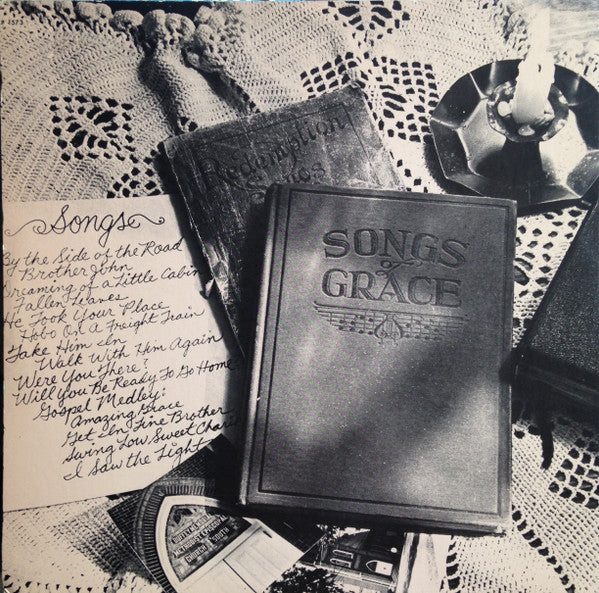 Songs
By the Side of the Road
Brother John
Dreaming of a Little Cabin
Fallen Leaves
He Took Your Place
Hobo On A Freight Train
Take Him In
Walk With Him Again
Were You There?
Will You Be Ready To Go Home?
Gospel Medley:
Amazing Grace
Get In Line Brother
Swing Low, Sweet Chari
I Saw the Light
Redemption
Songs
SONGS
of
GRACE
METHODIST EPISCOPAL
CHURCH SOUTH